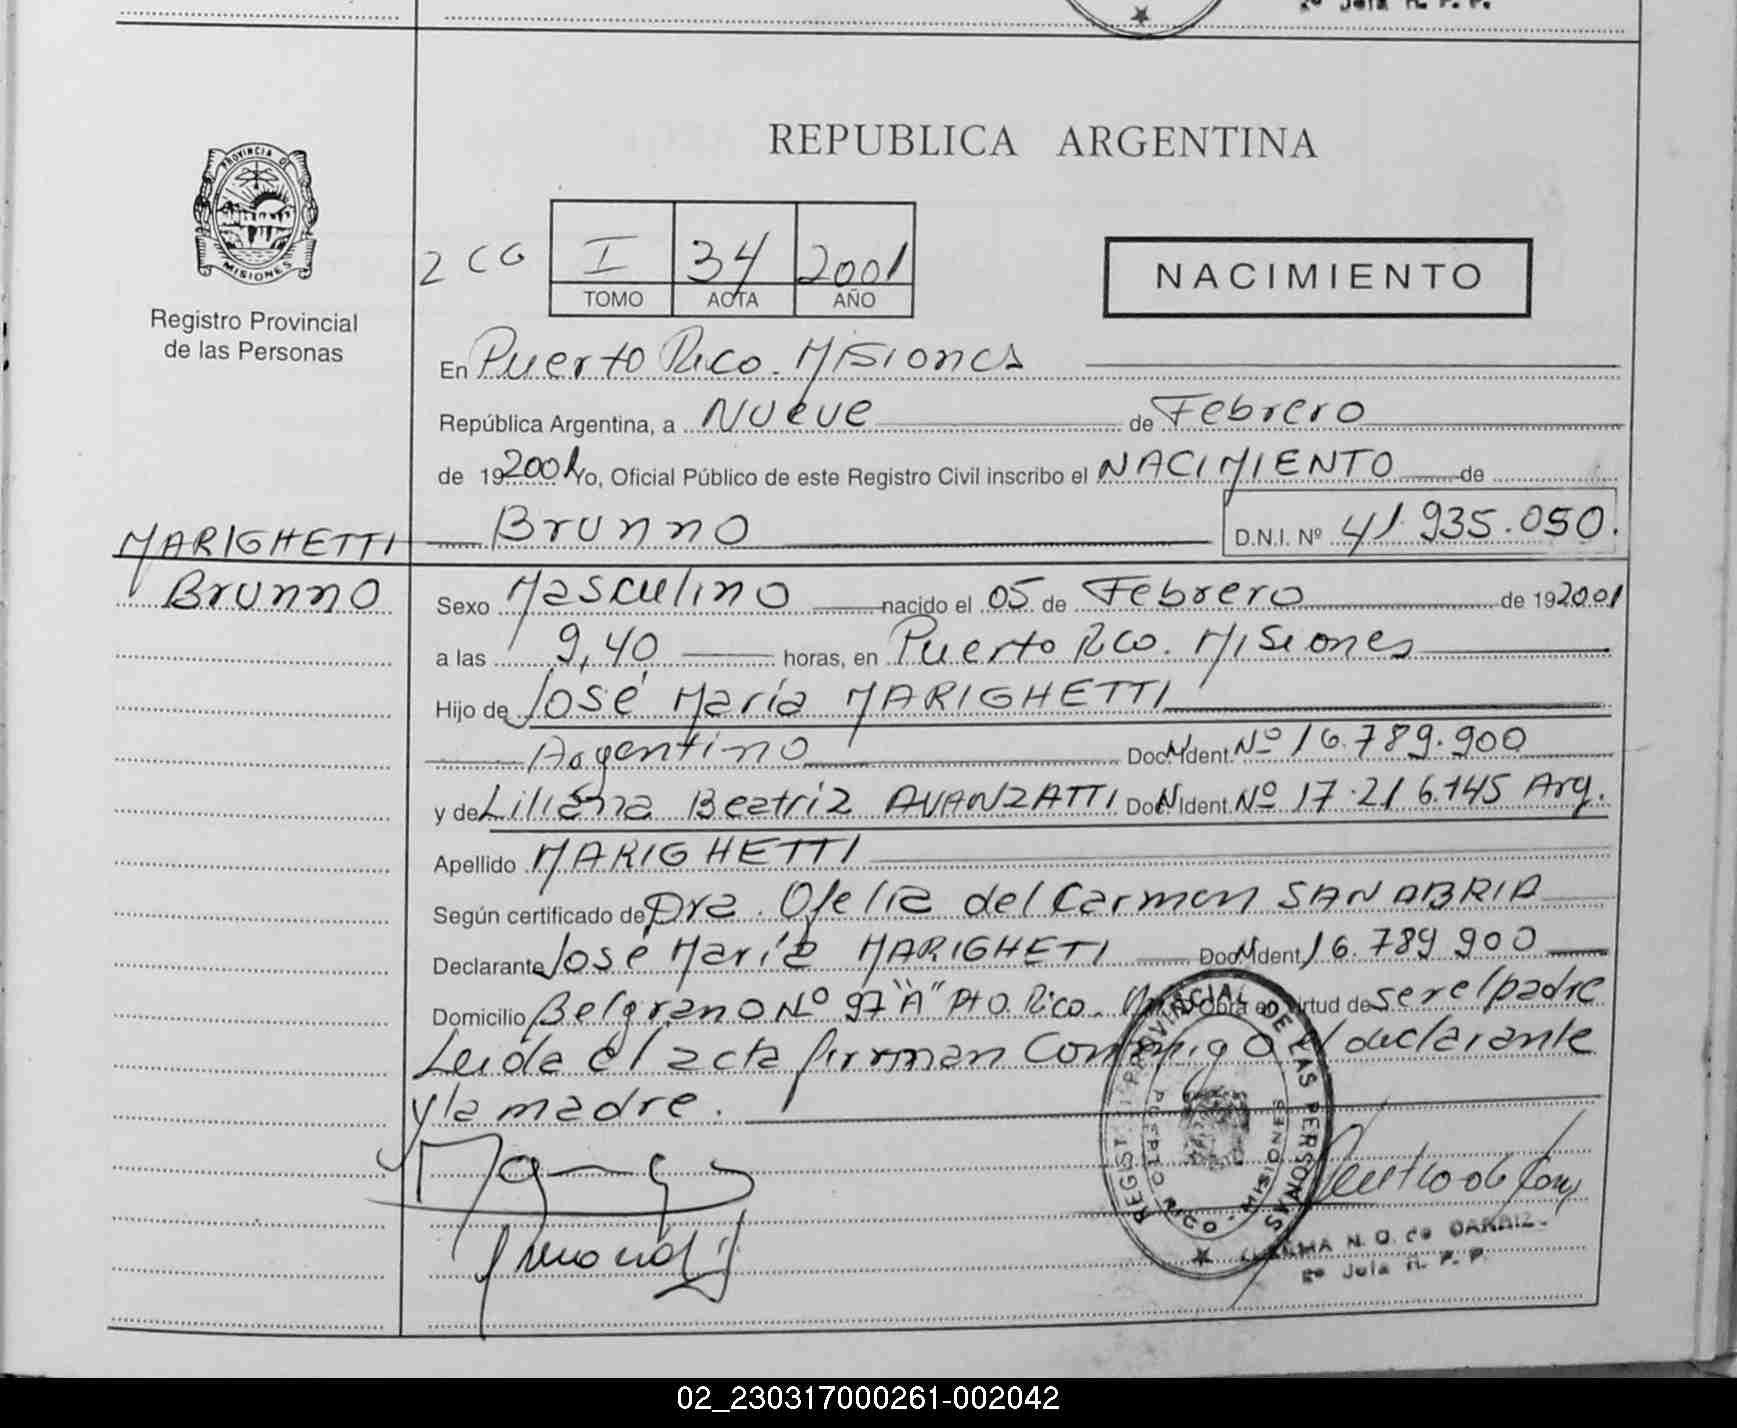 2º Jefa R. P. P.
REPUBLICA ARGENTINA
PROVINCIA DE
MISIONES
Registro Provincial
de las Personas
2 CG
I 34 2001
TOMO ACTA AÑO
NACIMIENTO
En Puerto Rico. Misiones
República Argentina, a Nueve de Febrero
de 192001 Yo, Oficial Público de este Registro Civil inscribo el NACIMIENTO de
MARIGHETTI Brunno D.N.I. Nº 41.935.050.
Brunno
Sexo Masculino nacido el 05 de Febrero de 192001
a las 9,40 horas, en Puerto Rico. Misiones
Hijo de José María MARIGHETTI
Argentino Doc. Ident. Nº 16.789.900
y de Liliana Beatriz AVANZATTI Doc. Ident. Nº 17.216.145 Arg.
Apellido MARIGHETTI
Según certificado de Dra. Ofelia del Carmen SANABRIA
Declarante José María MARIGHETI Doc. Ident. 16.789 900
Domicilio Belgrano Nº 97 "A" Pto. Rico. Obra en virtud de ser el padre
Leida el acta firman Conmigo el declarante
y la madre.
REGIST. PROVINCIAL DE LAS PERSONAS
PUERTO RICO - MISIONES
N. O. de
2º Jefa R. P. P.
02_230317000261-002042